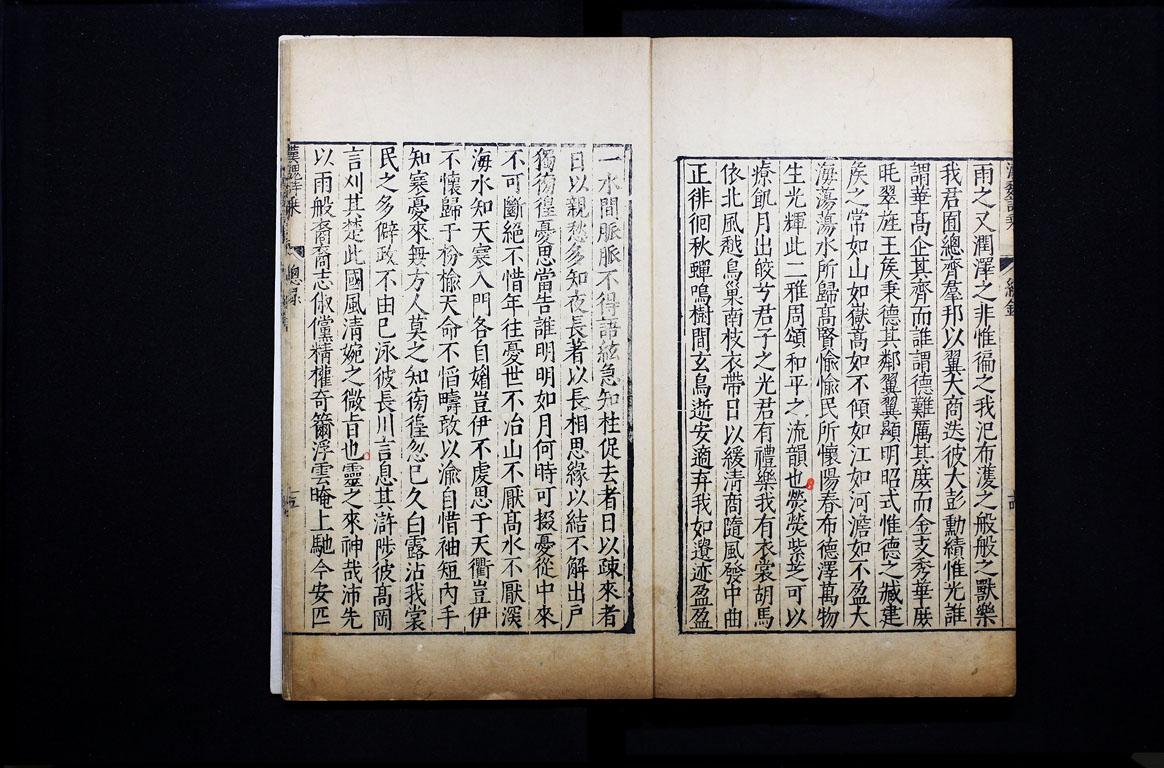 漢魏詩乘
總錄
雨之又潤澤之非惟徧之我氾布濩之般般之獸樂
我君囿總齊羣邦以翼大商迭彼大彭勳績惟光誰
謂華高企其齊而誰謂德難厲其庶而金支秀華庶
旄翠旌王侯秉德其鄰翼翼顯明昭式惟德之臧建
侯之常如山如嶽嵩如不傾如江如河澹如不盈大
海蕩蕩水所歸高賢愉愉民所懷陽春布德澤萬物
生光輝此二雅周頌和平之流韻也熒熒紫芝可以
療飢月出皎兮君子之光君有禮樂我有衣裳胡馬
依北風越鳥巢南枝衣帶日以緩清商隨風發中曲
正徘徊秋蟬鳴樹間玄鳥逝安適弃我如遺迹盈盈
一水間脈脈不得語絃急知柱促去者日以疎來者
日以親愁多知夜長著以長相思緣以結不解出戶
獨彷徨憂思當告誰明明如月何時可掇憂從中來
不可斷絕不惜年往憂世不治山不厭高水不厭深
海水知天寒入門各自媚豈伊不虔思于天衢豈伊
不懷歸于枌榆天命不慆疇敢以渝自惜袖短內手
知寒憂來無方人莫之知彷徨忽已久白露沾我裳
民之多僻政不由己泳彼長川言息其滸陟彼高岡
言刈其楚此國風清婉之微旨也靈之來神哉沛先
以雨般裔裔志俶儻精權奇籋浮雲晻上馳今安匹
漢魏詩乘
總錄